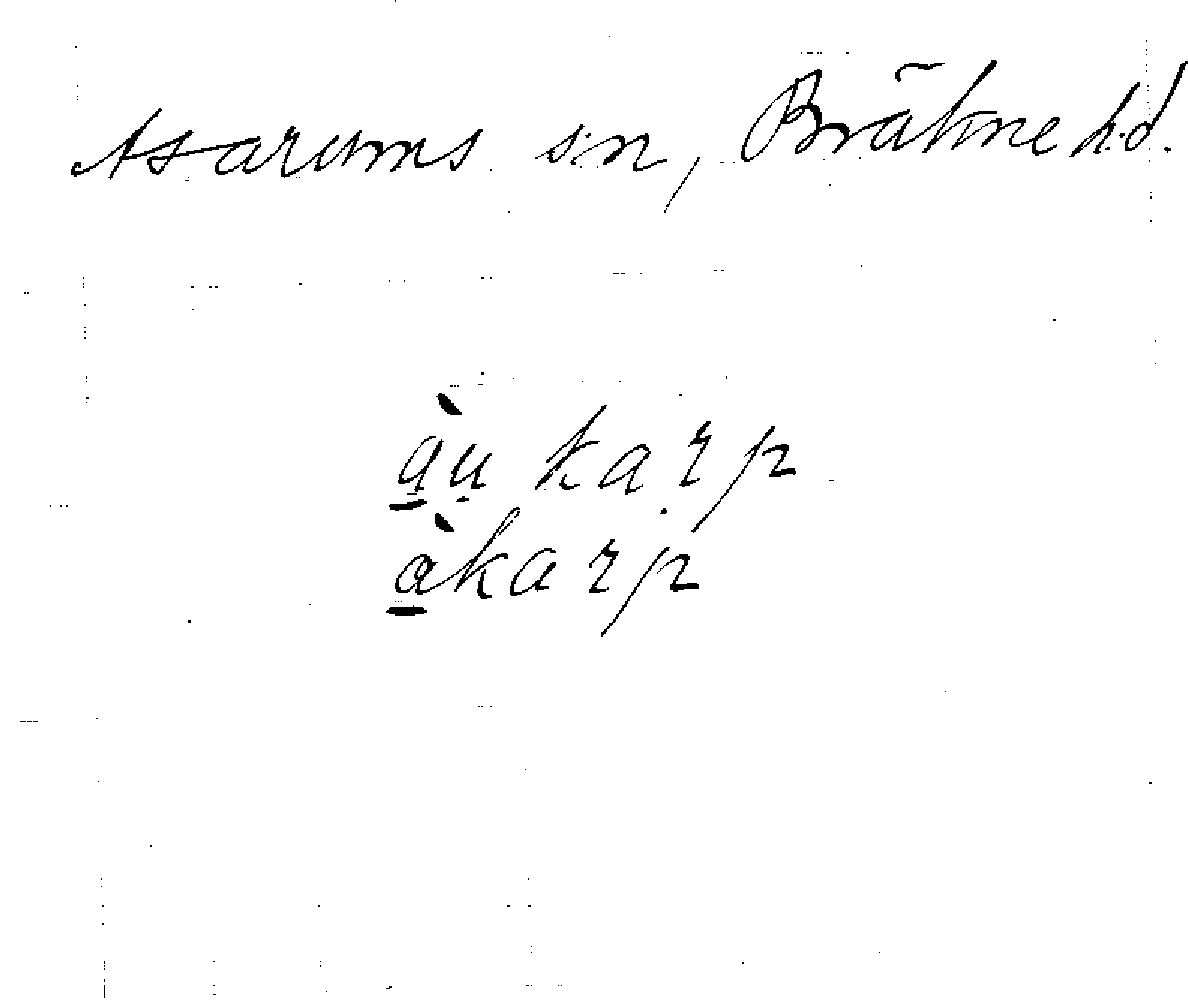 Asarums sn, Bräkne hd.
à̱u̥ karp
à̱karp